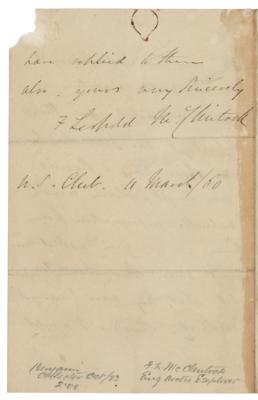 have replied to them
also - yours very Sincerely
F Leopold McClintock
U.S. Club. 11 March/60
Benjamin
Collector Oct/22
2.00
F L McClintock
Eng Arctic Explorer